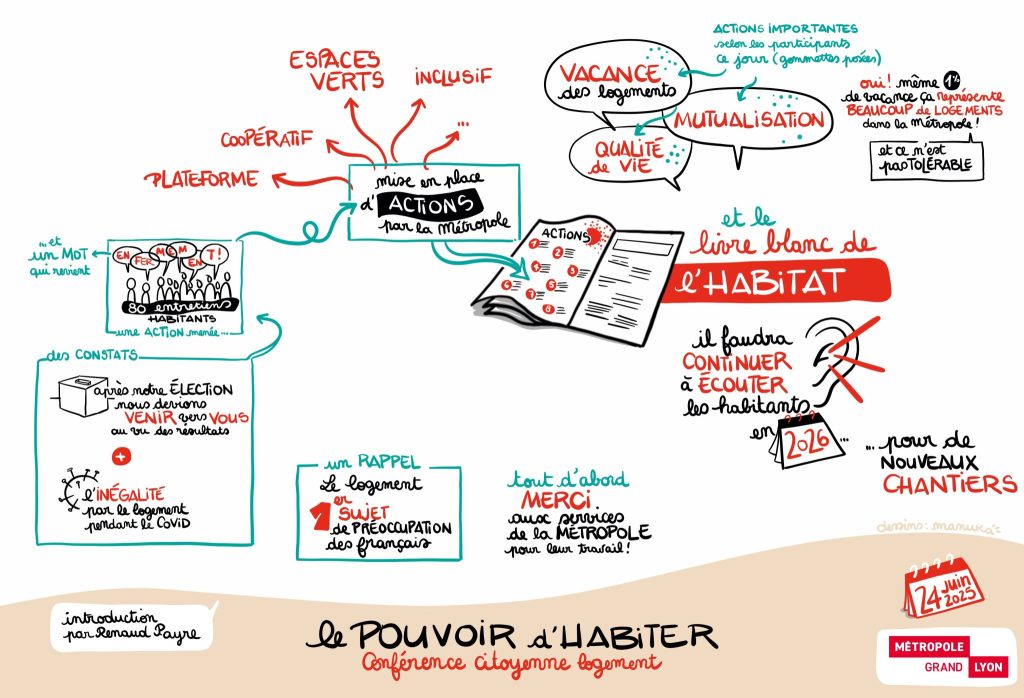 ESPACES
VERTS
INCLUSIF
COOPÉRATIF
...
PLATEFORME
mise en place
d'ACTIONS
par la Métropole
ACTIONS IMPORTANTES
selon les participants
ce jour (gommettes posées)
VACANCE
des logements
MUTUALISATION
QUALITÉ
de VIE
oui! même 1%
de vacance ça représente
BEAUCOUP de LOGEMENTS
dans la Métropole!
et ce n'est
pas TOLÉRABLE
...et
un MOT
qui revient
EN FER MEM EN T!
80 entretiens
HABITANTS
une ACTION menée...
ACTIONS
1
2
3
4
5
6
7
8
et le
livre blanc de
l'HABITAT
il faudra
CONTINUER
à ÉCOUTER
les habitants
en 2026 ...
... pour de
NOUVEAUX
CHANTIERS
des CONSTATS
après notre ÉLECTION
nous devions
VENIR vers VOUS
au vu des résultats
+
l'INÉGALITÉ
par le logement
pendant le COVID
un RAPPEL
Le logement
1er SUJET
de PRÉOCCUPATION
des français
tout d'abord
MERCI
aux services
de la MÉTROPOLE
pour leur travail!
dessins: manuka
introduction
par Renaud Payre
le POUVOIR d'HABITER
Conférence citoyenne logement
24 juin
2025
MÉTROPOLE
GRAND LYON